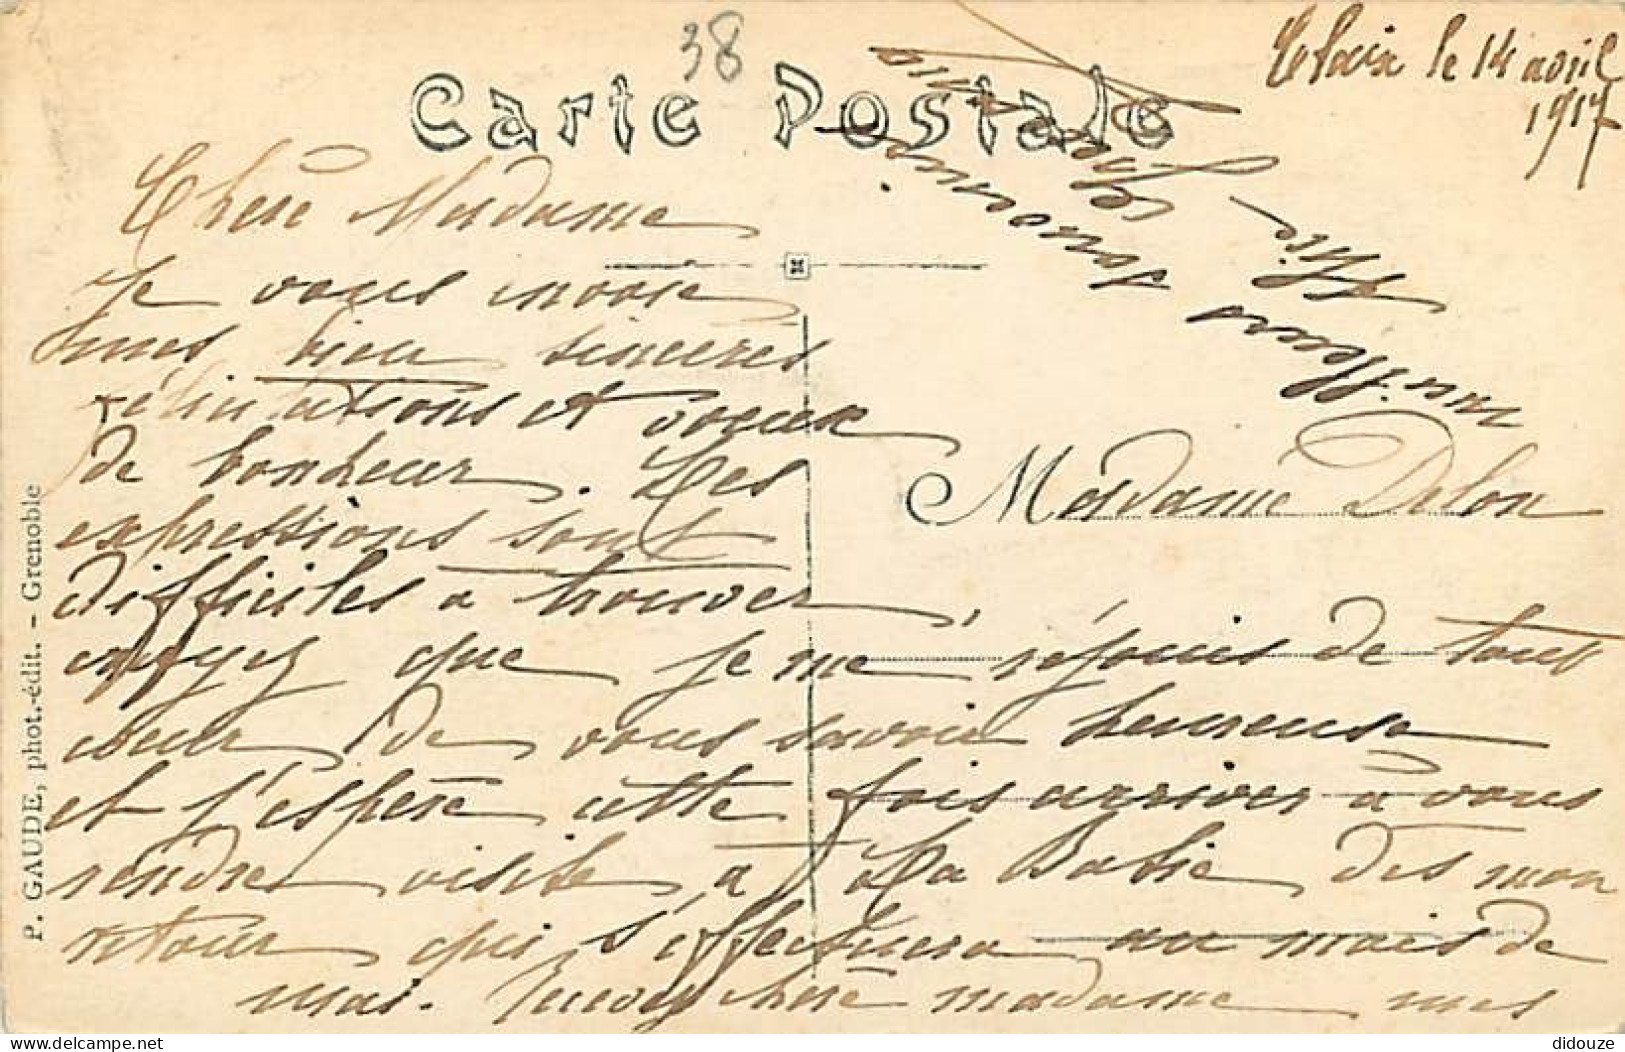 38
Carte Postale
Claix le 14 avril
1917
Chère Madame
Je vous envoie
mes bien sincères
félicitations et voeux
de bonheur. Les
expressions sont
difficiles a trouver,
croyez que je me réjouis de tout
coeur de vous savoir heureuse
et j'espère cette fois arriver à vous
rendre visite à La Batie dès mon
retour qui s'effectuera au mois de
mai. Recevez chère madame mes
meilleurs
souvenirs
Madame Delon
P. GAUDE, phot.-édit. - Grenoble
didouze